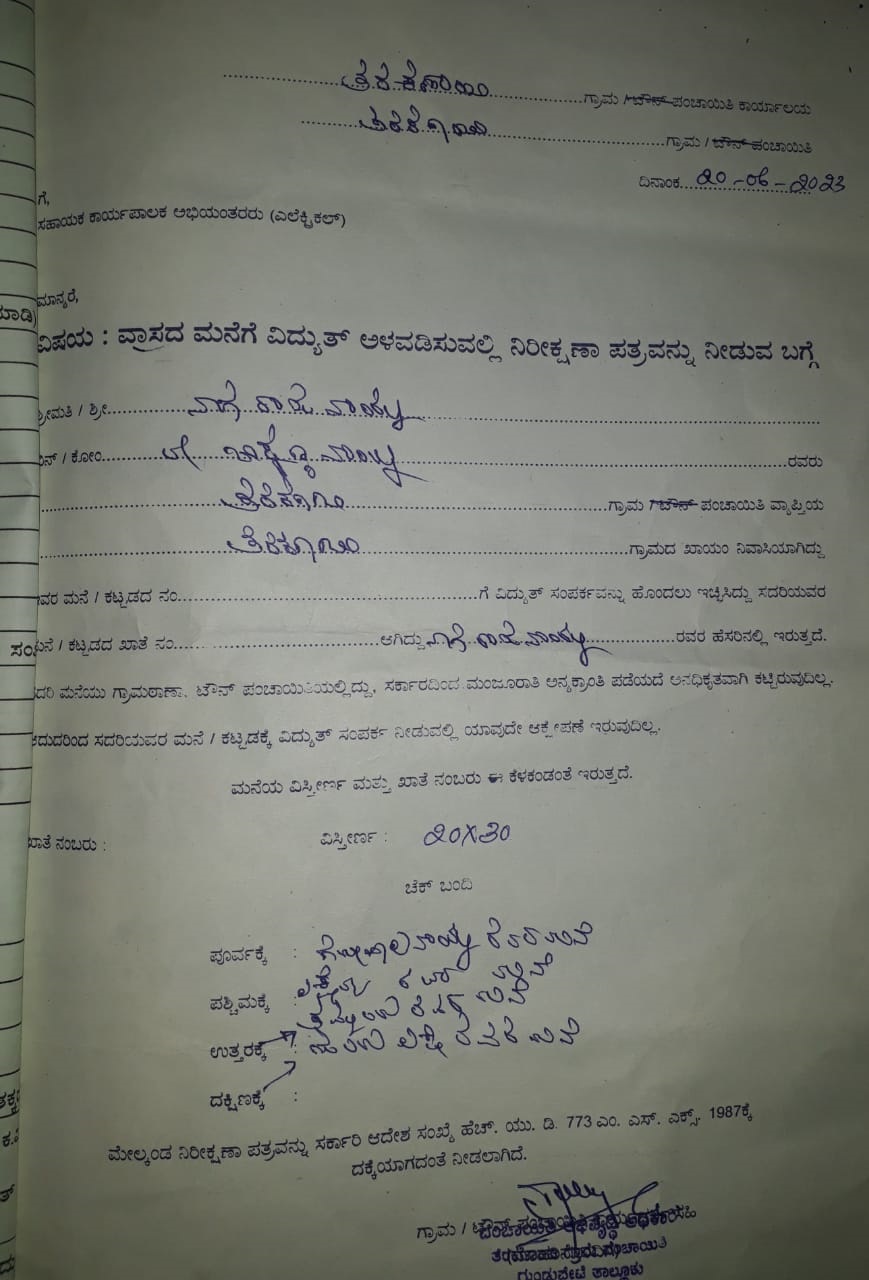 ತೆರಕಣಾಂಬಿ ಗ್ರಾಮ / ಟೌನ್ ಪಂಚಾಯಿತಿ ಕಾರ್ಯಾಲಯ
ತೆರಕಣಾಂಬಿ ಗ್ರಾಮ / ಟೌನ್ ಪಂಚಾಯಿತಿ
ದಿನಾಂಕ 20-06-2023
ಗೆ,
ಸಹಾಯಕ ಕಾರ್ಯಪಾಲಕ ಅಭಿಯಂತರರು (ಎಲೆಕ್ಟ್ರಿಕಲ್)
ಮಾನ್ಯರೆ,
ವಿಷಯ : ವ್ರಾಸದ ಮನೆಗೆ ವಿದ್ಯುತ್ ಅಳವಡಿಸುವಲ್ಲಿ ನಿರೀಕ್ಷಣಾ ಪತ್ರವನ್ನು ನೀಡುವ ಬಗ್ಗೆ
ಶ್ರೀಮತಿ / ಶ್ರೀ ನಾಗರಾಜನಾಯ್ಕ
ಬಿನ್ / ಕೋಂ ನಾಯ್ಕ ರವರು
ತೆರಕಣಾಂಬಿ ಗ್ರಾಮ / ಟೌನ್ ಪಂಚಾಯಿತಿ ವ್ಯಾಪ್ತಿಯ
ತೆರಕಣಾಂಬಿ ಗ್ರಾಮದ ಖಾಯಂ ನಿವಾಸಿಯಾಗಿದ್ದು
ಇವರ ಮನೆ / ಕಟ್ಟಡದ ನಂ. ಗೆ ವಿದ್ಯುತ್ ಸಂಪರ್ಕವನ್ನು ಹೊಂದಲು ಇಚ್ಛಿಸಿದ್ದು ಸದರಿಯವರ
ಮನೆ / ಕಟ್ಟಡದ ಖಾತೆ ನಂ. ಆಗಿದ್ದು ನಾಗರಾಜನಾಯ್ಕ ರವರ ಹೆಸರಿನಲ್ಲಿ ಇರುತ್ತದೆ.
ಸದರಿ ಮನೆಯು ಗ್ರಾಮಠಾಣಾ, ಟೌನ್ ಪಂಚಾಯಿತಿಯಲ್ಲಿದ್ದು, ಸರ್ಕಾರದಿಂದ ಮಂಜೂರಾತಿ ಅನ್ಯಕ್ರಾಂತಿ ಪಡೆಯದೆ ಅನಧಿಕೃತವಾಗಿ ಕಟ್ಟಿರುವುದಿಲ್ಲ.
ಆದುದರಿಂದ ಸದರಿಯವರ ಮನೆ / ಕಟ್ಟಡಕ್ಕೆ ವಿದ್ಯುತ್ ಸಂಪರ್ಕ ನೀಡುವಲ್ಲಿ ಯಾವುದೇ ಆಕ್ಷೇಪಣೆ ಇರುವುದಿಲ್ಲ.
ಮನೆಯ ವಿಸ್ತೀರ್ಣ ಮತ್ತು ಖಾತೆ ನಂಬರು ಈ ಕೆಳಕಂಡಂತೆ ಇರುತ್ತದೆ.
ಖಾತೆ ನಂಬರು : ವಿಸ್ತೀರ್ಣ : 20X30
ಚೆಕ್ ಬಂದಿ
ಪೂರ್ವಕ್ಕೆ : ಗೋಪಾಲನಾಯ್ಕ ರವರ ಮನೆ
ಪಶ್ಚಿಮಕ್ಕೆ : ರವರ ಮನೆ
ಉತ್ತರಕ್ಕೆ : ರವರ ಮನೆ
ದಕ್ಷಿಣಕ್ಕೆ : ರವರ ಮನೆ
ಮೇಲ್ಕಂಡ ನಿರೀಕ್ಷಣಾ ಪತ್ರವನ್ನು ಸರ್ಕಾರಿ ಆದೇಶ ಸಂಖ್ಯೆ ಹೆಚ್. ಯು. ಡಿ. 773 ಎಂ. ಎಸ್. ಎಕ್ಸ್. 1987ಕ್ಕೆ
ದಕ್ಕೆಯಾಗದಂತೆ ನೀಡಲಾಗಿದೆ.
ಗ್ರಾಮ / ಟೌನ್ ಸಹಿ
ಪಂಚಾಯಿತಿ ಅಭಿವೃದ್ಧಿ ಅಧಿಕಾರಿ
ಗುಂಡ್ಲುಪೇಟೆ ತಾಲ್ಲೂಕು